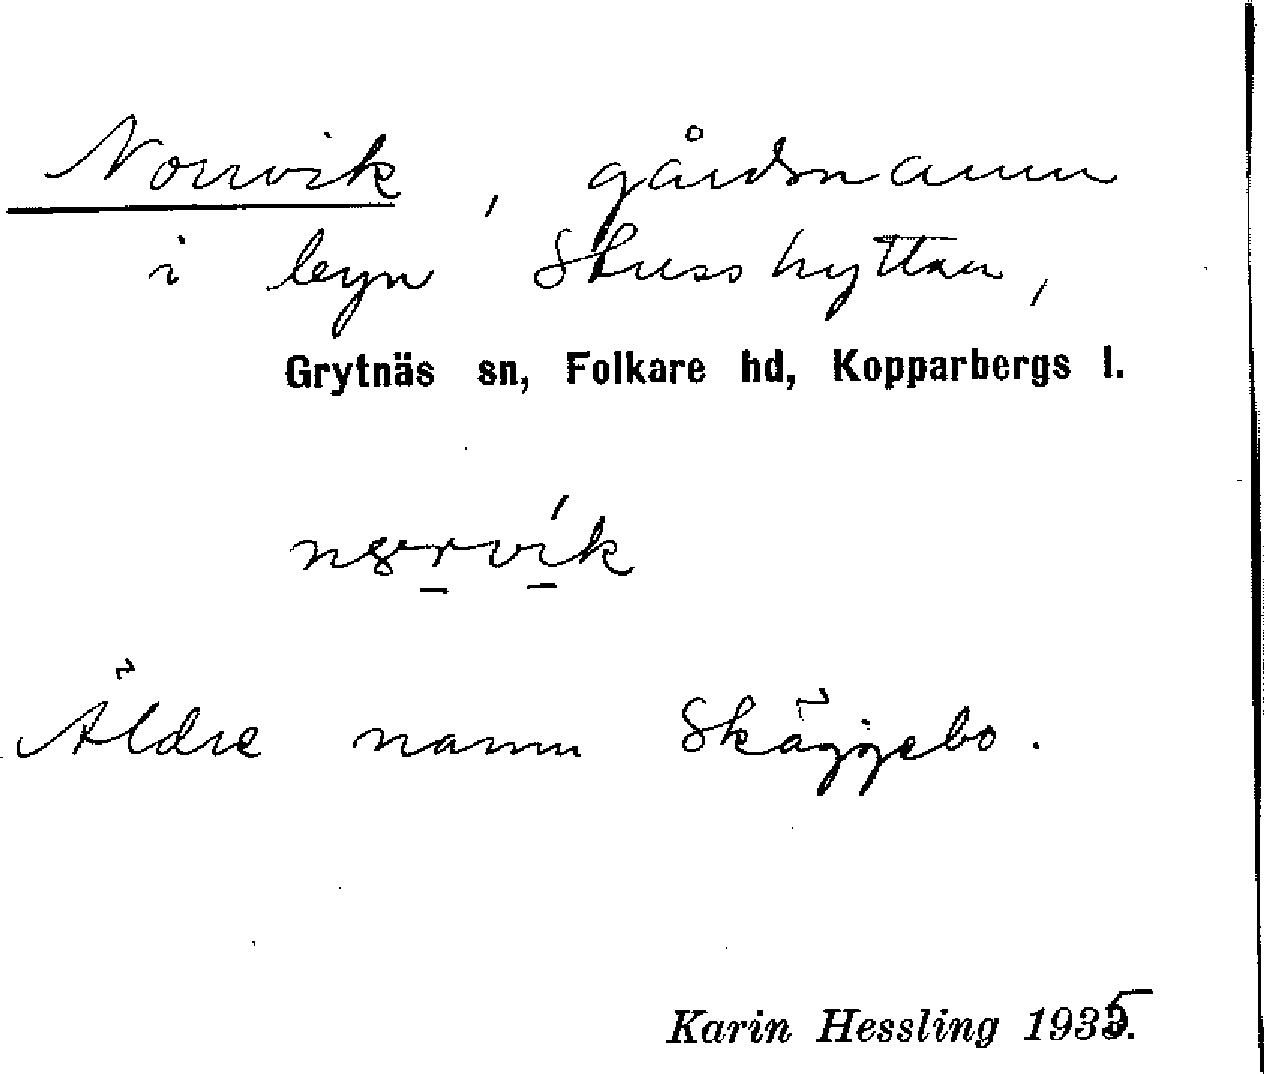 Norrvik, gårdsnamn
i byn Skusshyttan,
Grytnäs sn, Folkare hd, Kopparbergs l.
Äldre namn Skäggebo.
Karin Hessling 1935.